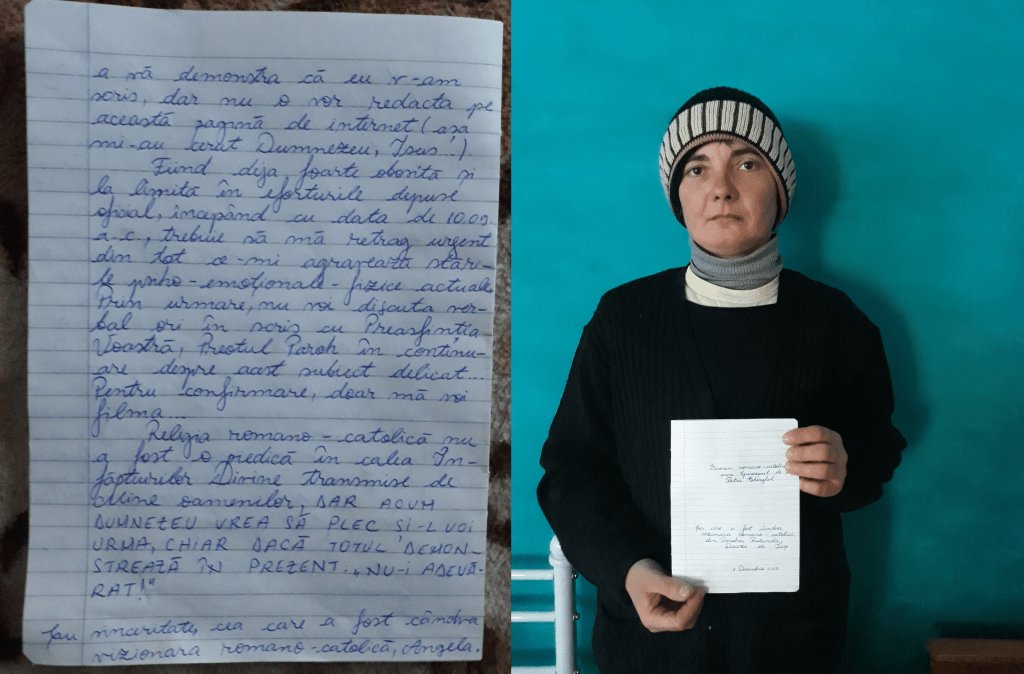 a vă demonstra că eu v-am
scris, dar nu o vor redacta pe
această pagină de internet (așa
mi-au cerut Dumnezeu, Isus...!).
Fiind deja foarte obosită și
la limită în eforturile depuse
oficial, începând cu data de 10.09.
a.c., trebuie să mă retrag urgent
din tot ce-mi agravează stări-
le psiho-emoționale-fizice actuale.
Prin urmare, nu voi discuta ver-
bal ori în scris cu Preasfinția
Voastră, Preotul Paroh în continu-
are despre acest subiect delicat...
Pentru confirmare, doar mă voi
filma...
Religia romano-catolică nu
a fost o piedică în calea În-
făpturilor Divine transmise de
Mine oamenilor, DAR ACUM
DUMNEZEU VREA SĂ PLEC ȘI-L VOI
URMA, CHIAR DACĂ TOTUL DEMON-
STREAZĂ ÎN PREZENT: „NU-I ADEVĂ-
RAT!"
Cu sinceritate, cea care a fost cândva
vizionara romano-catolică, Angela.
romano-catolică
Episcopul de
Petru Gherghel
cea care a fost cândva
vizionara romano-catolică,
din Parohia
de Iași